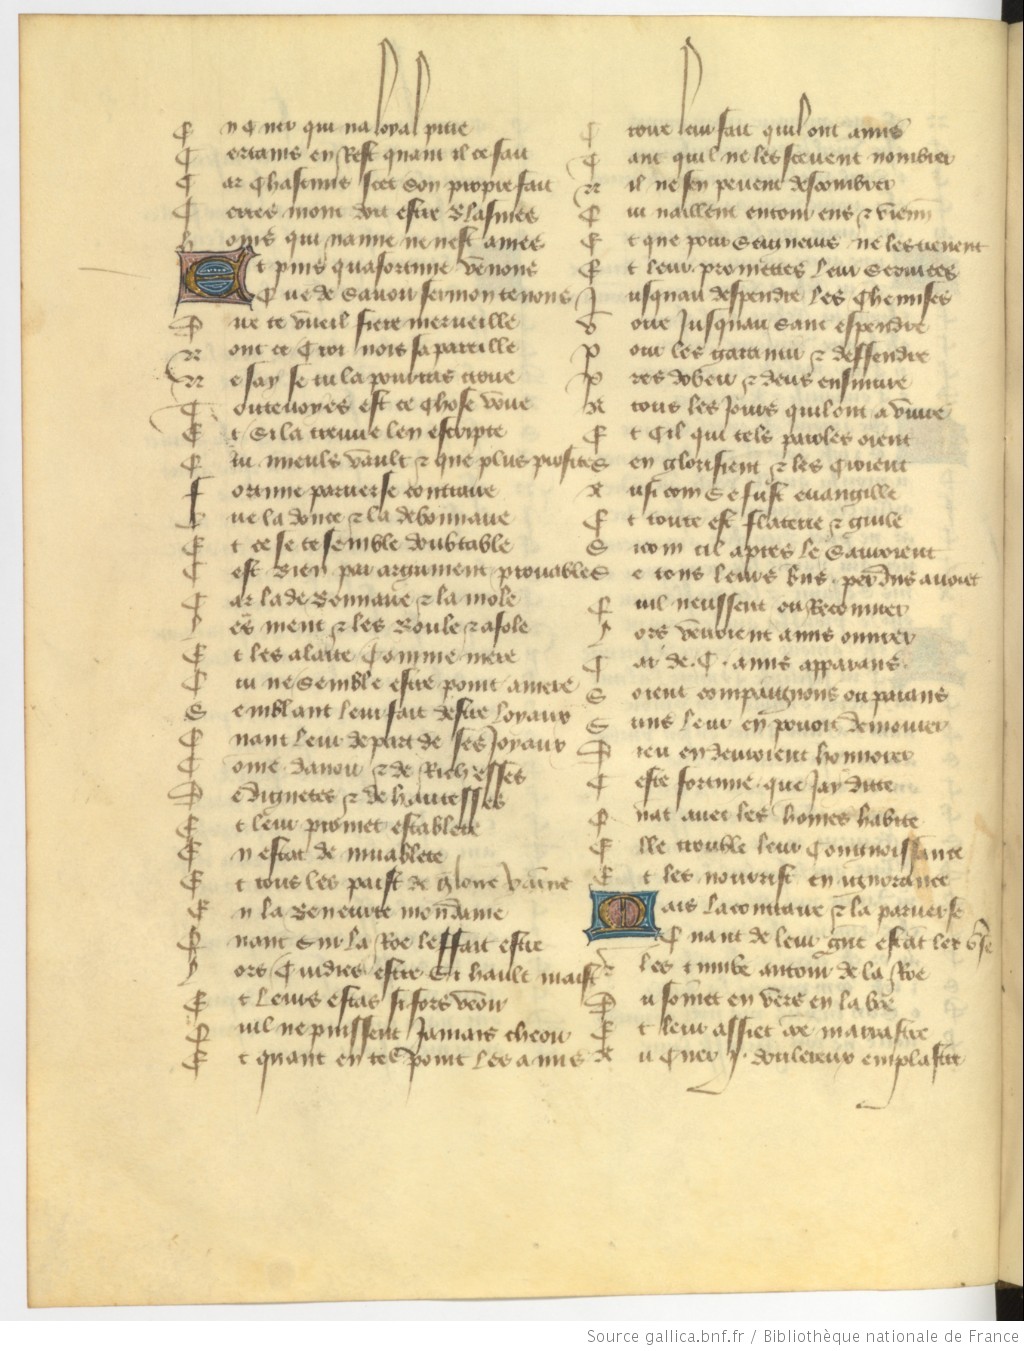 E n cuer qui na loyal pitie
C ertains en Rest quant il ce fait
C ar Chascuns scet son propre fait
C ertes moult doit estre blasmes
h oms qui nainne ne nest ames
E t puis qua fortune venons
Q ue de sauoir sermon tenons
D ire te vueil fiere merueille
N onc ce croi nois sa pareille
N e say se tu la pourras croire
T outeuoyes est ce chose voire
E t si la treuue len escripte
Q ui mieuls vault & que plus profite
F ortune paruerse contraire
Q ue la doulce & la debonnaire
E t ce se te semble doubtable
C est bien par argument prouuable
C ar la debonnaire & la mole
l es ment & les boule & afole
E t les alaite comme mere
Q ui ne semble estre point amere
S emblant leur fait destre loyaux
Q uant leur depart de ses joyaux
C ome danour & de Richesses
D e dignetes & de hautesses
E t leur promet establete
E n estat de muablete
E t tous les paist de gloire vainne
E n la beneurte mondaine
Q uant sur la Roe les fait estre
l ors cuident estre si hault maistre
E t leurs estas si fors veoir
Q uil ne puissent jamais cheoir
E t quant en tel point les a mis
C roire leur fait quil ont amis
T ant quil ne les sceuent nombrer
N il ne sen peuent descombrer
Q ui naillent entour eus & viennent
E t que pour seigneurs ne les tienent
E t leur promettes leur seruices
J usquau despendre les chemises
V oire jusquau sanc espendre
P our les garantir & deffendre
P res dobeir & deus ensuiure
A tous les jours quil ont a viure
E t cil qui tels paroles oient
S en glorifient & les croient
A usi com se fust euangille
E t toute est flaterie & guile
S icom cil apres le sauroient
S e tous leurs biens perdus auoient
Q uil neussent ou Recouurer
l ors verroient amis ouurer
C ar de .C. amis apparans
S oient compaignons ou parans
S uns leur en pouoit demourer
D ieu en deuroient honnorer
C este fortune que jay ditte
Q uant auec les homes habite
E lle trouble leur congnoissance
E t les nourrist en ignorance
M ais la contraire & la paruerse
Q uant de leur grant estat les verse
& les tumbe autour de la Roe
D u somet en vers en la boe
E t leur assiet comme marrastre
A u cuer .j. doulereux emplastre
Source gallica.bnf.fr / Bibliothèque nationale de France